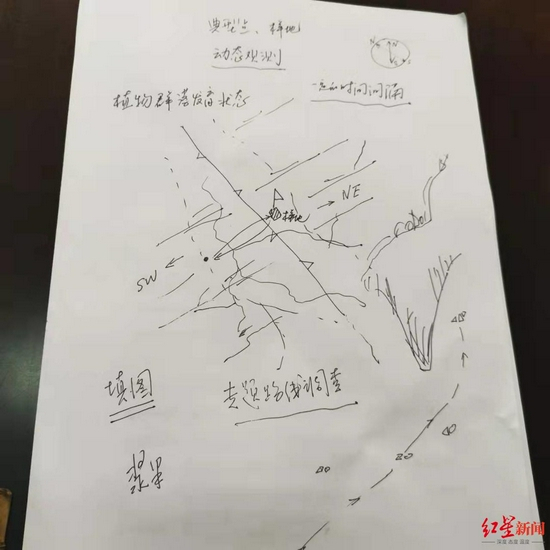 典型点、样地
动态观测
N
植物群落发育状态
一定的时间间隔
NE
样地
SW
填图
专题路线调查
浆果
红星新闻
深度 态度 温度